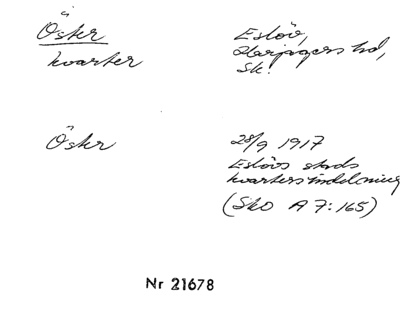 Öster
kvarter
Eslöv,
Harjagers hd,
Sk.
Öster
28/9 1917
Eslövs stads
kvartersindelning
(SkO A 7:165)
Nr 21678